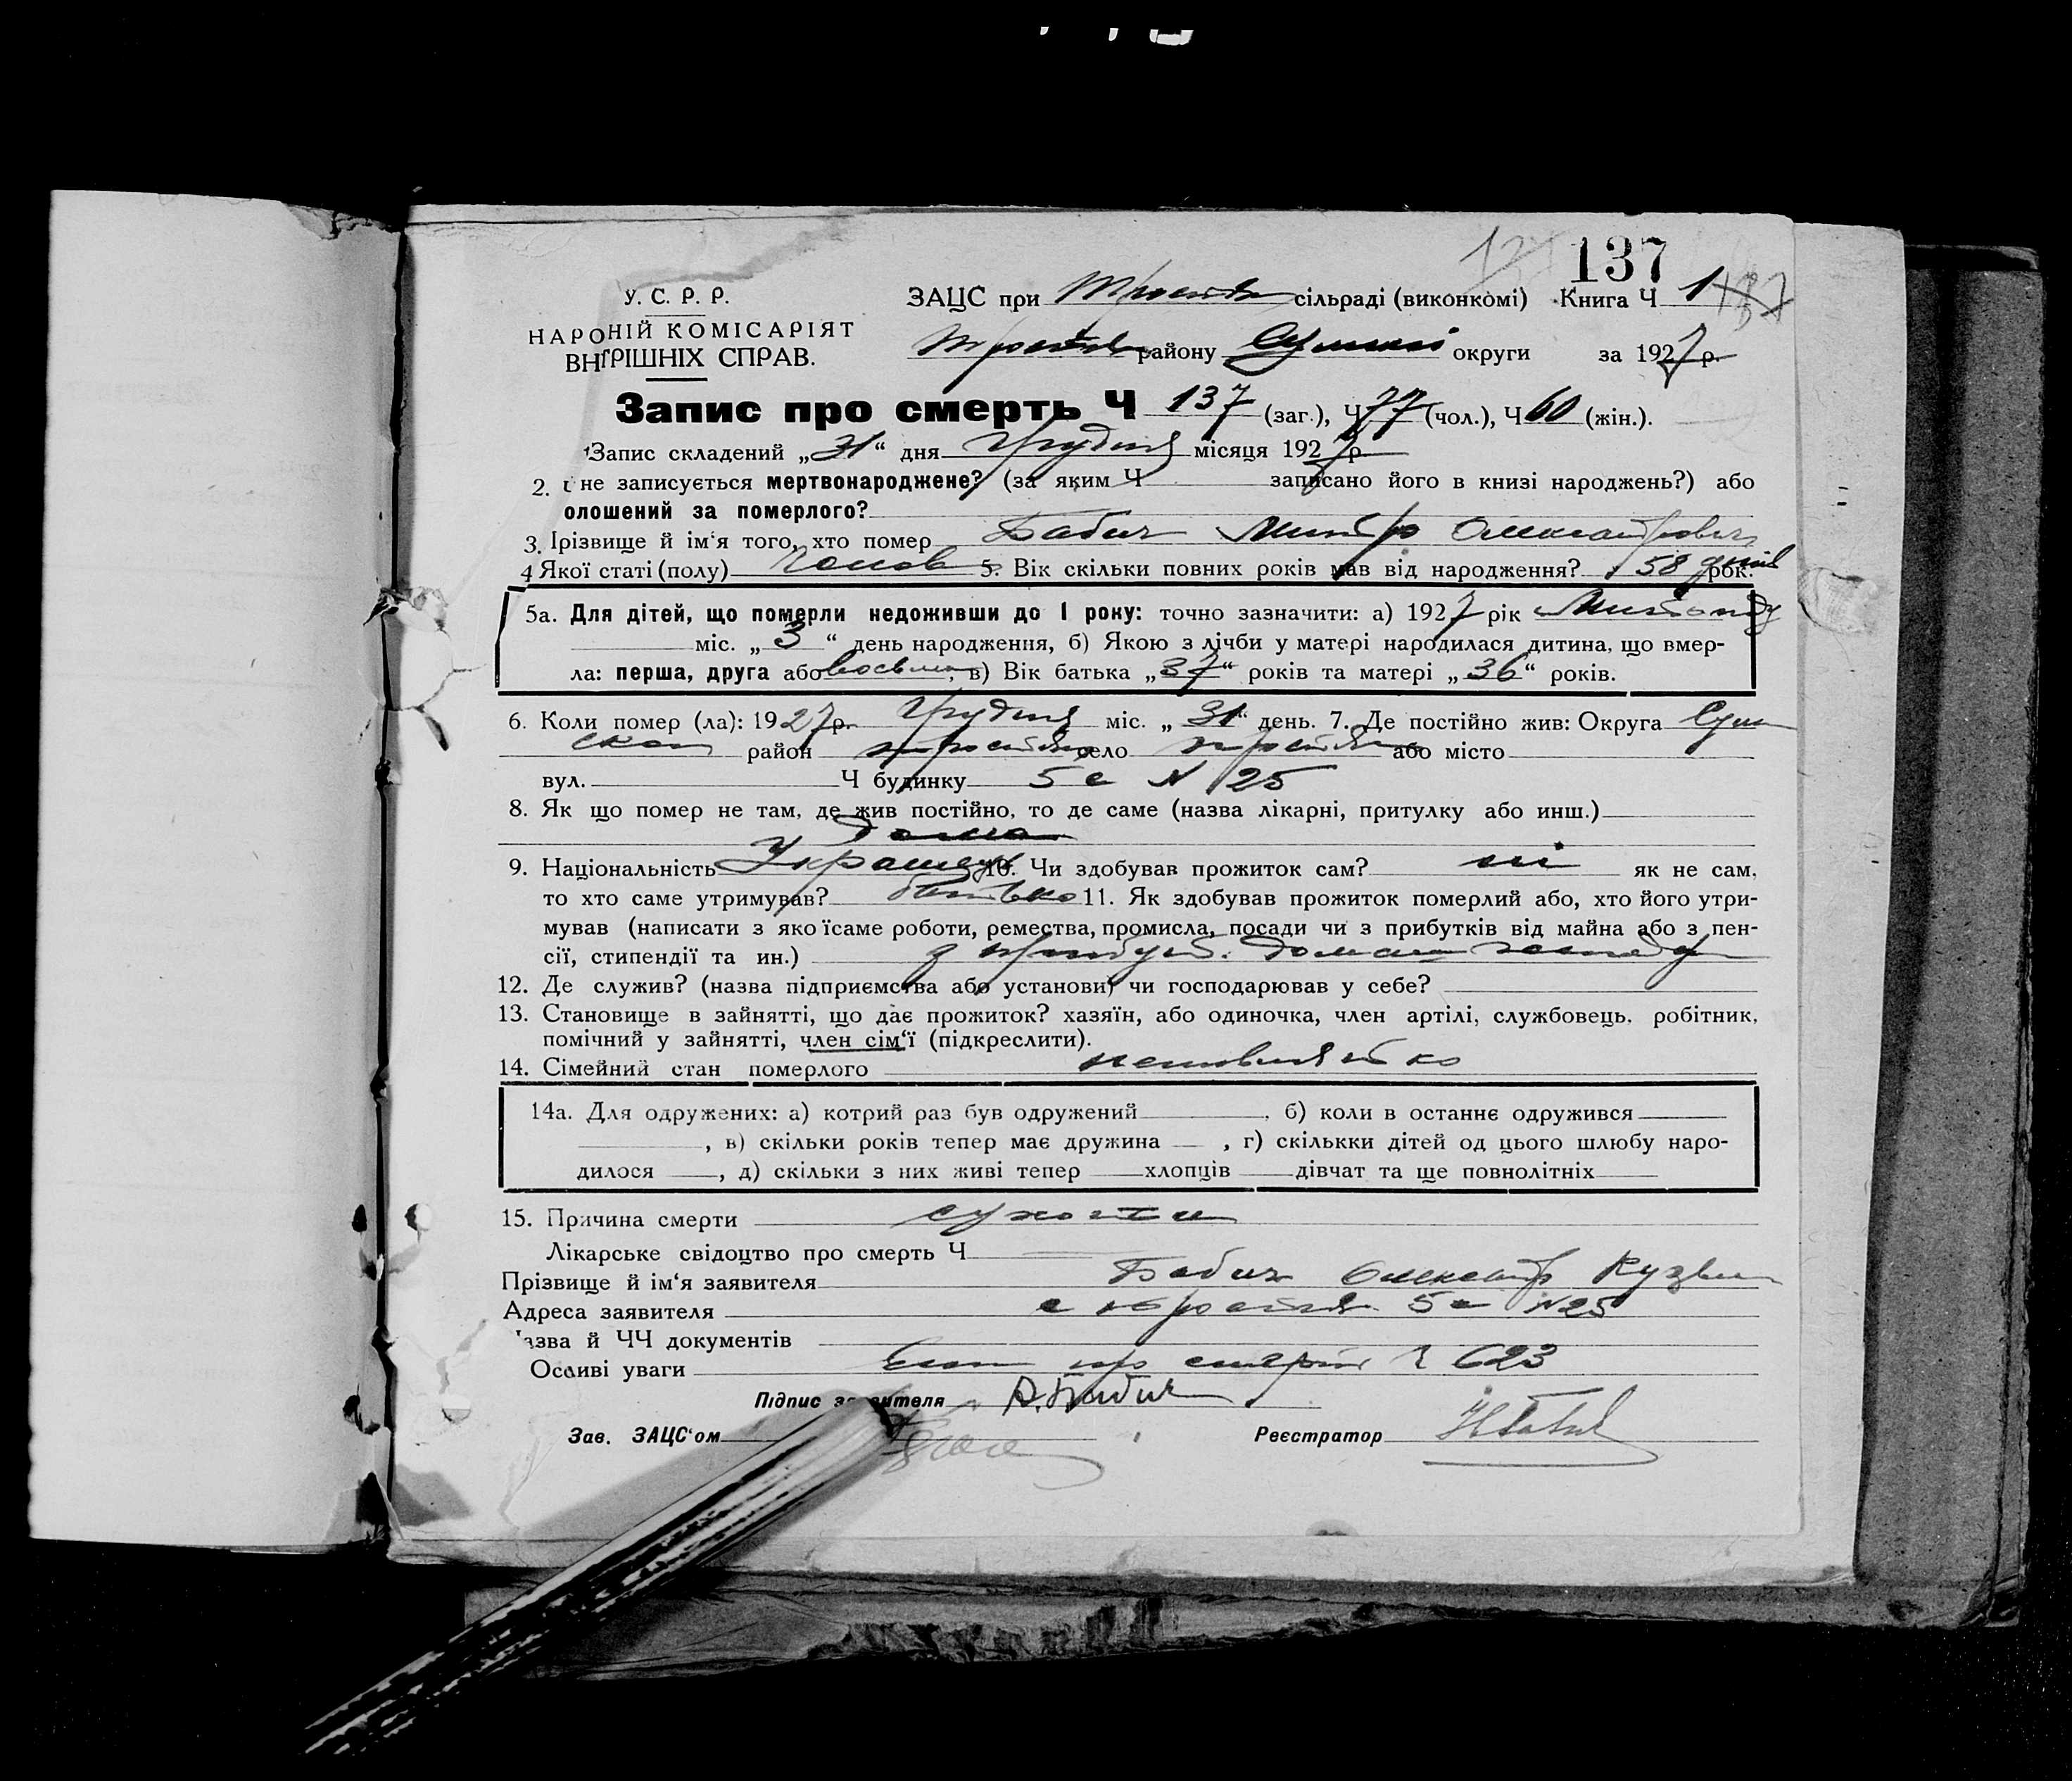 137
У. С. Р. Р.
ЗАЦС при сільраді (виконкомі) Книга Ч 1
НАРОНІЙ КОМІСАРІЯТ
ВНТРІШНІХ СПРАВ.
району округи за 1927 р.
Запис про смерть Ч 137 (заг.), Ч 77 (чол.), Ч 60 (жін.).
Запис складений „31“ дня Грудня місяця 1927 р.
2. і не записується мертвонароджене? (за яким Ч записано його в книзі народжень?) або
олошений за померлого?
3. Ірізвище й ім‘я того, хто помер Бабич Митро Олександрович
4 Якої статі (полу) Чолов 5. Вік скільки повних років мав від народження? 58 днів рок.
5а. Для дітей, що померли недоживши до 1 року: точно зазначити: а) 1927 рік
міс. „3“ день народження, б) Якою з лічби у матері народилася дитина, що вмер-
ла: перша, друга або восьма, в) Вік батька „37“ років та матері „36“ років.
6. Коли помер (ла): 1927 р. Грудня міс. „31“ день. 7. Де постійно жив: Округа Сум
ская район село або місто
вул. Ч будинку 5 с N 25
8. Як що помер не там, де жив постійно, то де саме (назва лікарні, притулку або инш.)
Дома
9. Національність 10. Чи здобував прожиток сам? ні як не сам,
то хто саме утримував? батько 11. Як здобував прожиток померлий або, хто його утри-
мував (написати з яко їсаме роботи, ремества, промисла, посади чи з прибутків від майна або з пен-
сії, стипендії та ин.) з
12. Де служив? (назва підприємства або установи) чи господарював у себе?
13. Становище в зайнятті, що дає прожиток? хазяїн, або одиночка, член артілі, службовець, робітник,
помічний у зайнятті, член сім‘ї (підкреслити).
14. Сімейний стан померлого
14а. Для одружених: а) котрий раз був одружений , б) коли в останнє одружився
, в) скільки років тепер має дружина , г) скількки дітей од цього шлюбу наро-
дилося , д) скільки з них живі тепер хлопців дівчат та ще повнолітніх
15. Причина смерти сухоти
Лікарське свідоцтво про смерть Ч
Прізвище й ім‘я заявителя Бабич Олександр
Адреса заявителя 5 с N 25
азва й ЧЧ документів
Осливі уваги про смерть 623
Підпис заявителя А. Бабич
Зав. ЗАЦС‘ом Реєстратор